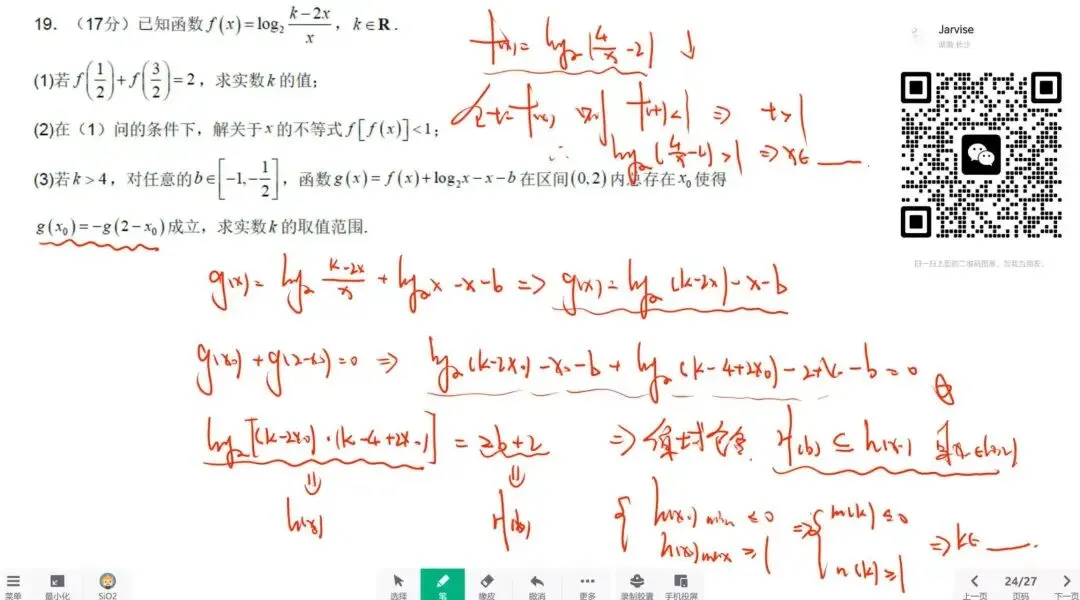 19. （17分）已知函数 f(x)=log₂ (k−2x)/x，k∈R.
(1)若 f(1/2)+f(3/2)=2，求实数 k 的值；
(2)在（1）问的条件下，解关于 x 的不等式 f[f(x)]<1；
(3)若 k>4，对任意的 b∈[−1,−1/2]，函数 g(x)=f(x)+log₂x−x−b 在区间(0,2)内总存在 x₀ 使得
g(x₀)=−g(2−x₀)成立，求实数 k 的取值范围.
f(x)=log₂(4/x−2) ↓
令t=f(x), 则 f(t)<1 ⇒ t>1
∴ log₂(4/x−2)>1 ⇒ x∈ ___.
Jarvise
g(x)=log₂ (k−2x)/x + log₂x −x−b ⇒ g(x)=log₂(k−2x)−x−b
g(x₀)+g(2−x₀)=0 ⇒ log₂(k−2x₀)−x₀−b+log₂(k−4+2x₀)−2+x₀−b=0
log₂[(k−2x₀)·(k−4+2x₀)] = 2b+2 ⇒ 值域包含 H(b)⊆h(x)
h(x) H(b)
{ h(x)min≤0 ⇒ { m(k)≤0
h(x)max≥1 n(k)≥1 ⇒ k∈ ___.
菜单 最小化 SiO2 选择 笔 橡皮 撤消 更多 录制胶囊 手机投屏 上一页 24/27 页码 下一页